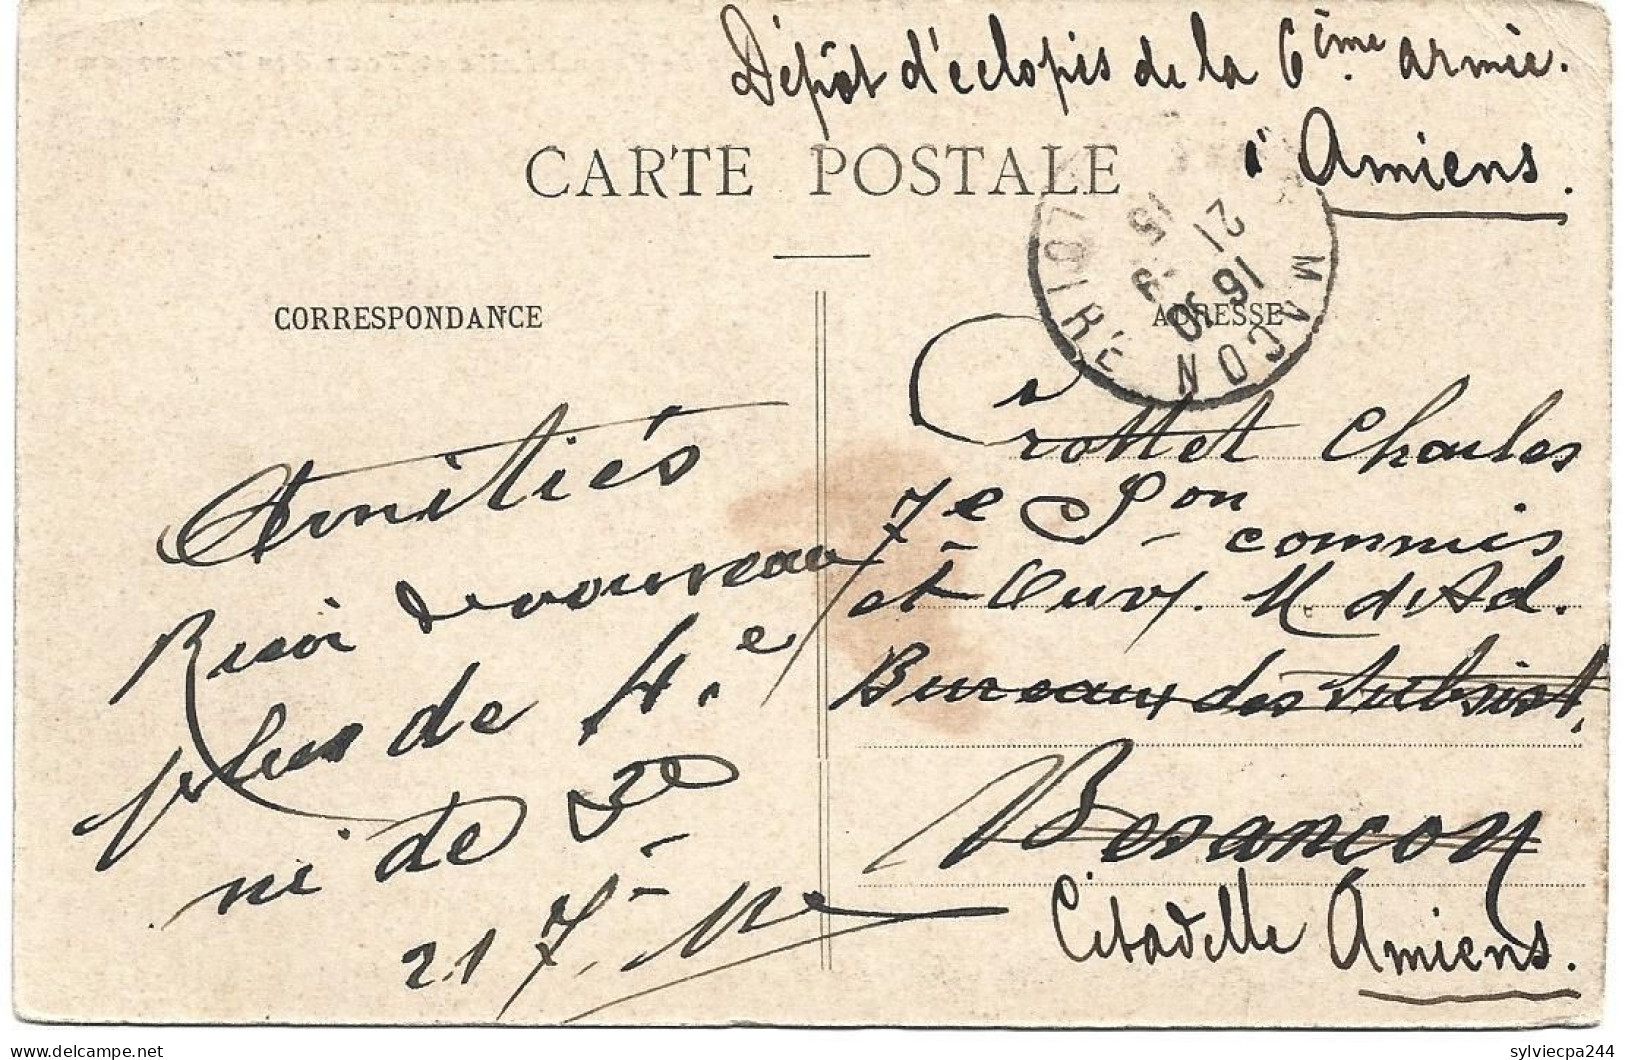 Dépôt d'éclopés de la 6ème armée.
à Amiens.
CARTE POSTALE
MACON
LOIRE
16 30
21 -9
15
CORRESPONDANCE
ADRESSE
Amitiés
de nouveau
plus de 4.e
ni de 3e
21 7.
Crottet Charles
7e Son commis
et Ouv. M. d'Ad.
Bureaux des Subsist.
Besançon
Citadelle Amiens.
sylviecpa244